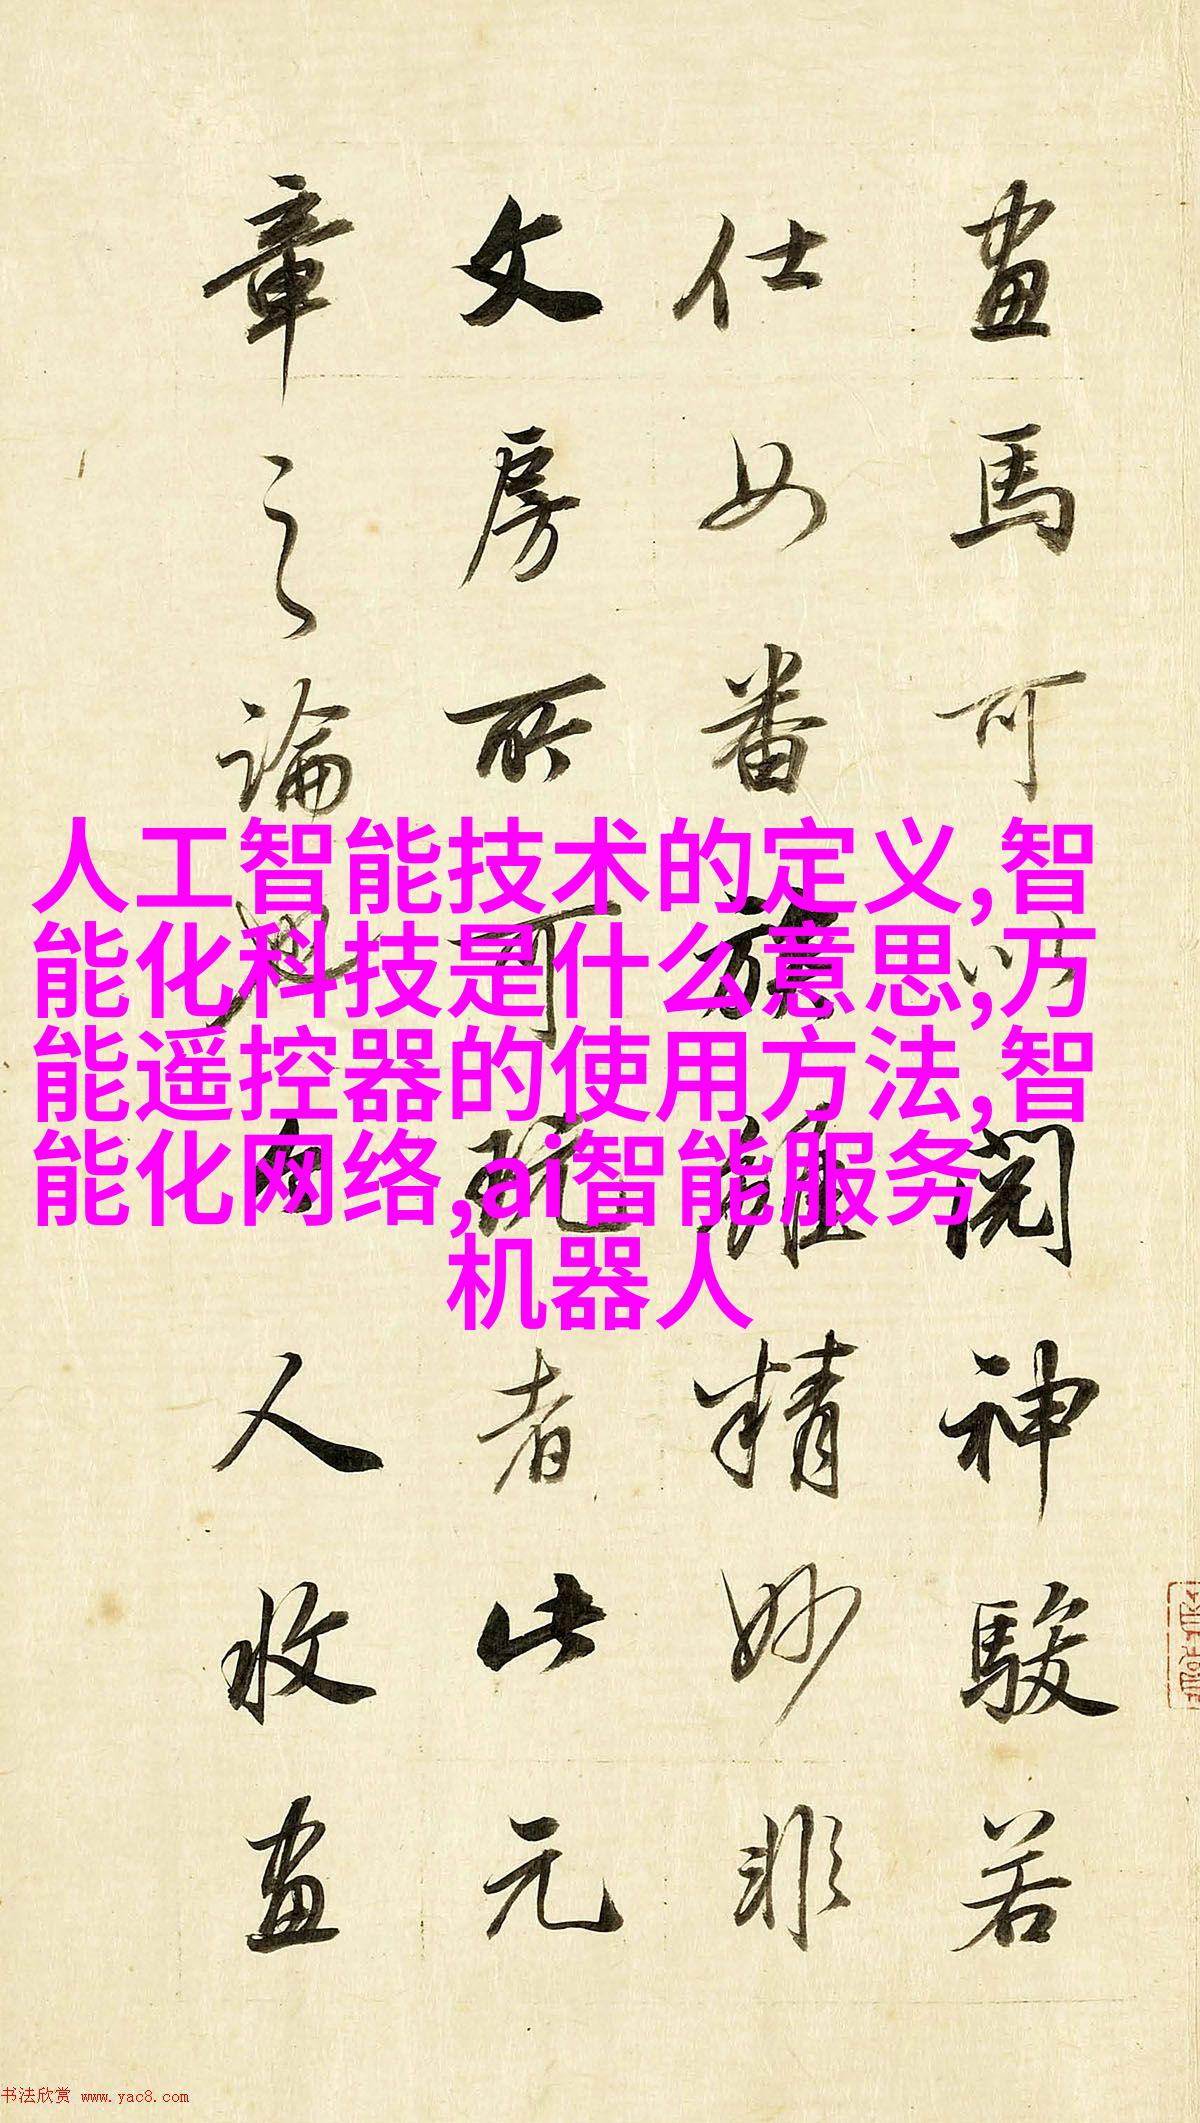 畫馬可以閱神駿若
仕女番族雖精妙非
文房所可玩者此元
章之論也今人收畫
人工智能技术的定义,智
能化科技是什么意思,万
能遥控器的使用方法,智
能化网络,ai智能服务
机器人
书法欣赏 www.yac8.com